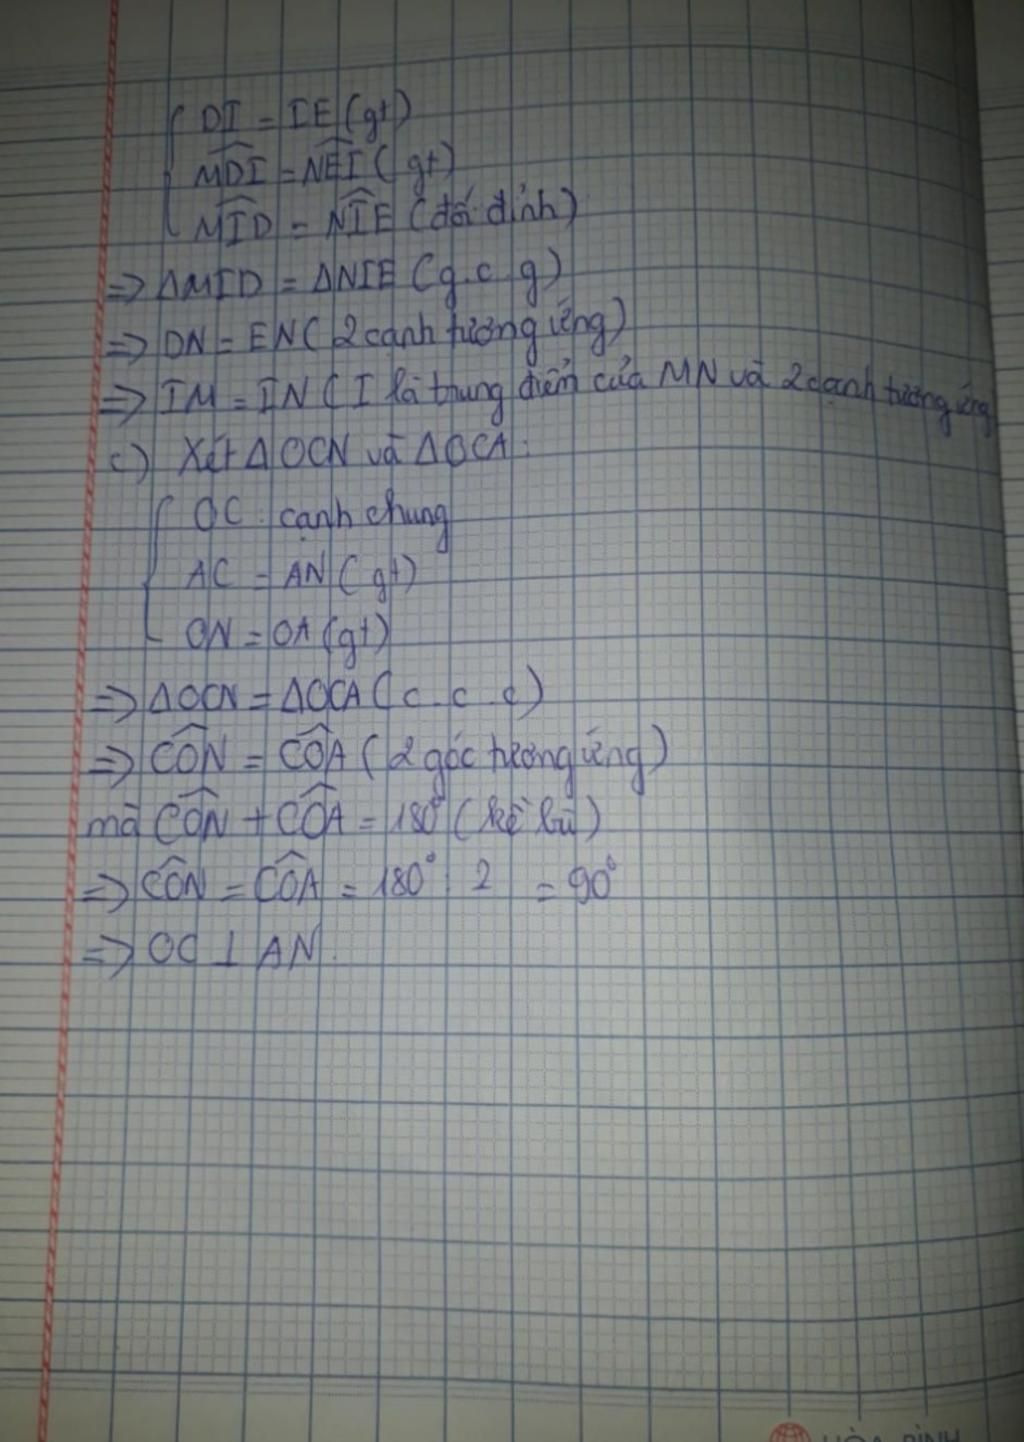 DI = IE (gt)
M̂DI = N̂EI (gt)
M̂ID = N̂IE (đối đỉnh)
=> ΔMID = ΔNIE (g.c.g)
=> DN = EN (2 cạnh tương ứng)
=> IM = IN (I là trung điểm của MN và 2 cạnh tương ứng
c) Xét ΔOCN và ΔOCA:
OC: cạnh chung
AC = AN (gt)
ON = OA (gt)
=> ΔOCN = ΔOCA (c.c.c)
=> CÔN = CÔA (2 góc tương ứng)
mà CÔN + CÔA = 180° (kề bù)
=> CÔN = CÔA = 180° : 2 = 90°
=> OC ⊥ AN.
HÒA BÌNH